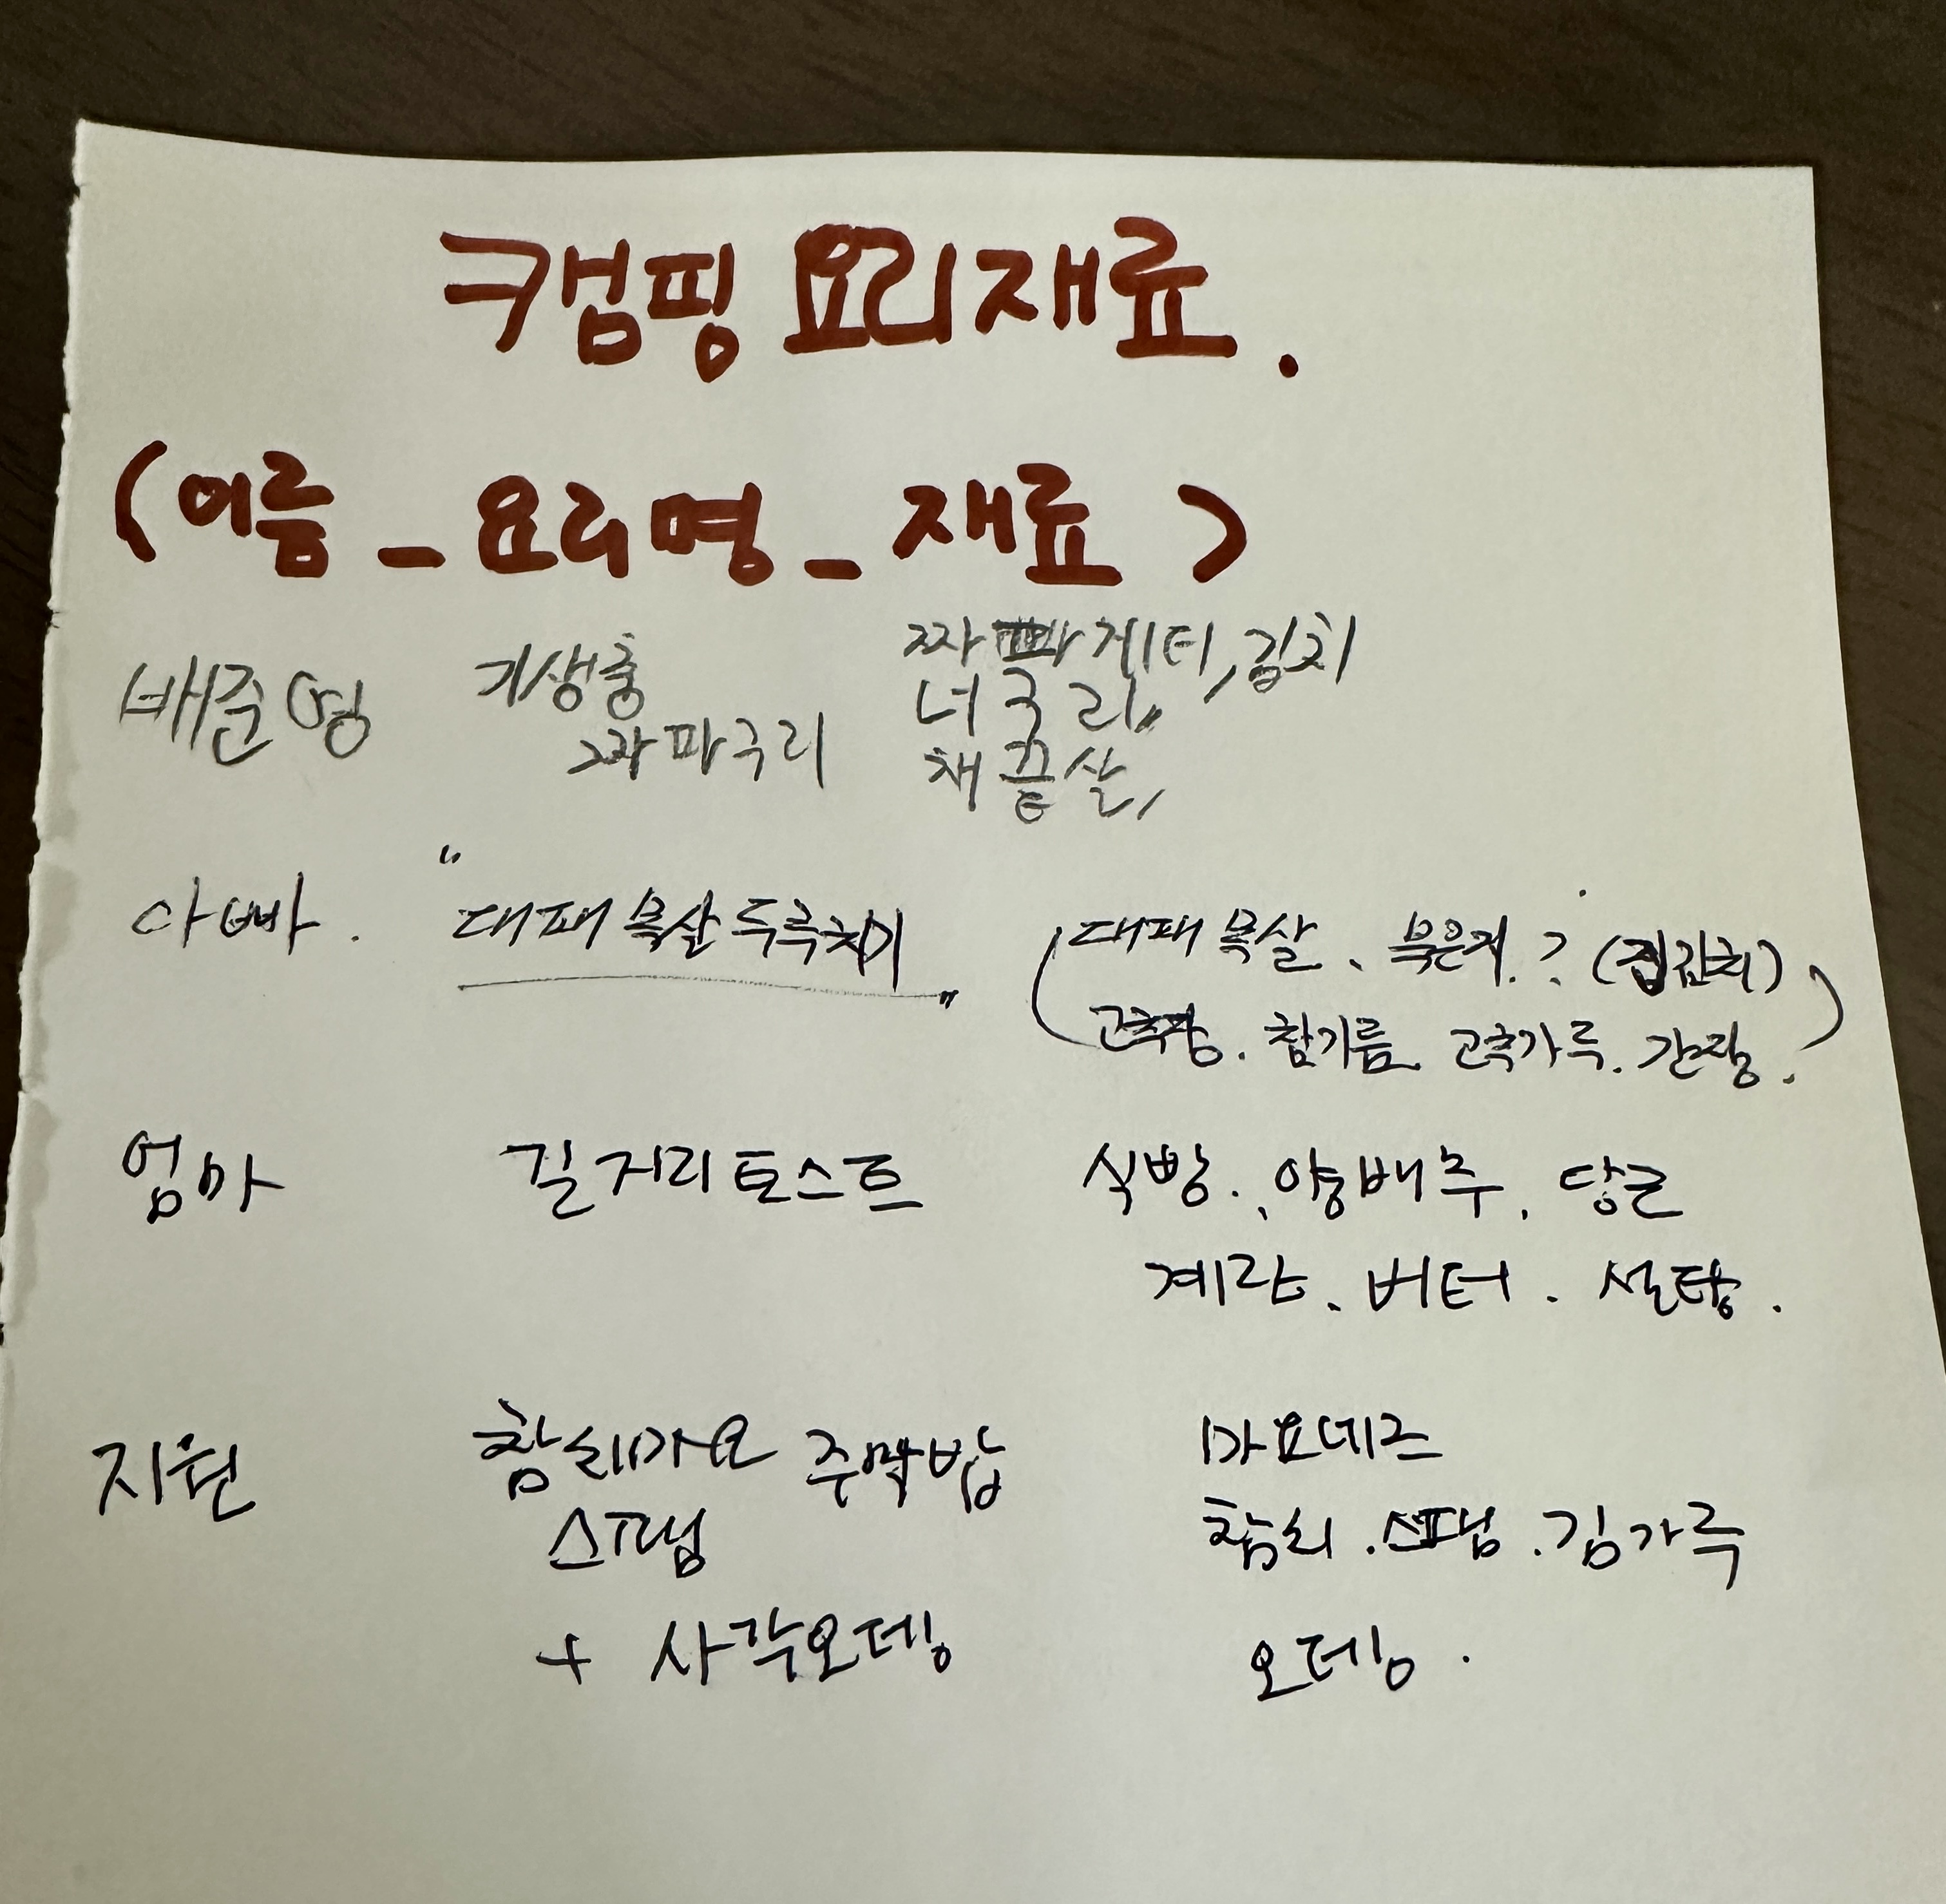 캠핑 요리재료.
(이름 - 요리명 - 재료)
배준영 기생충 짜파게티, 김치
짜파구리 너구리,
채끝살,
아빠. "대패목살두루치기" (대패목살, 묵은지.? (집김치)
고추장. 참기름. 고추가루. 간장.)
엄마 길거리토스트 식빵., 양배추, 당근
계란, 버터. 설탕.
지원 참치마요 주먹밥 마요네즈
스팸 참치. 스팸. 김가루
+ 사각오뎅 오뎅.